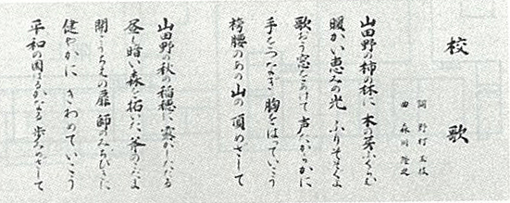 校歌
詞 野村 玉枝
曲 森川 隆之
山田野の柿の林に 木の芽ふくらむ
暖かい恵みの光 ふりそそぐよ
歌おう窓をあけて 声たからかに
手をつなぎ 胸をはっていこう
袴腰のあの山の 頂めざして
山田野の秋の稲穂に 露がしたたる
昼も暗い森を拓いた 斧のこだまよ
開こうちえの扉 師のみちびきに
健やかに きわめていこう
平和の国はるかなる 歩みだして